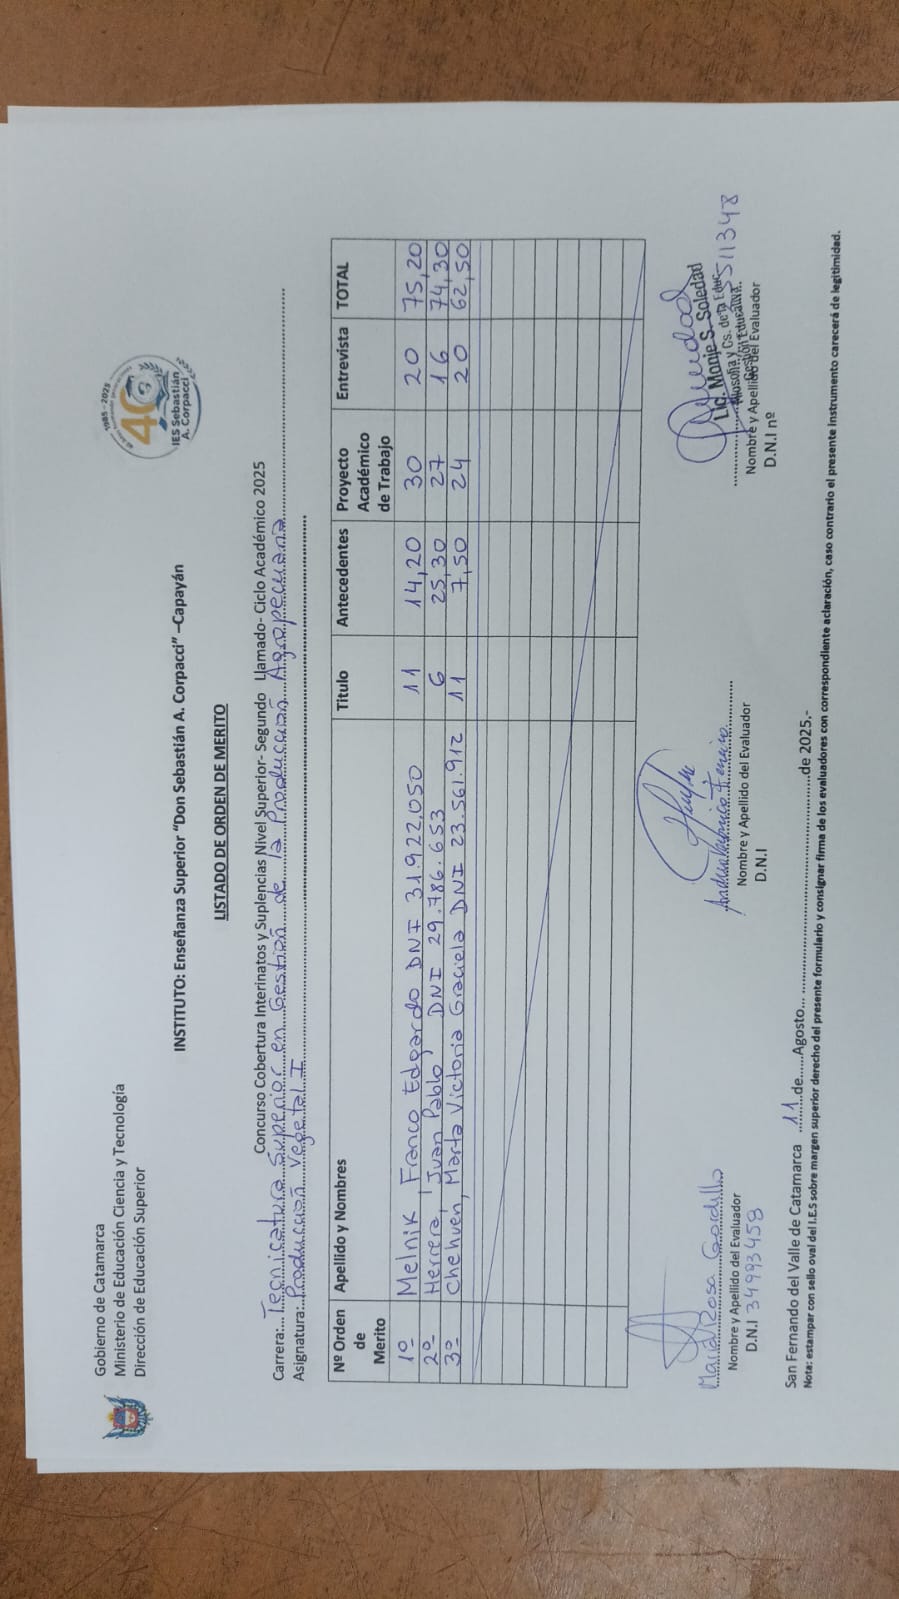 Gobierno de Catamarca
Ministerio de Educación Ciencia y Tecnología
Dirección de Educación Superior
1985 - 2025
40
IES Sebastián
A. Corpacci
INSTITUTO: Enseñanza Superior "Don Sebastián A. Corpacci" –Capayán
LISTADO DE ORDEN DE MERITO
Concurso Cobertura Interinatos y Suplencias Nivel Superior- Segundo Llamado- Ciclo Académico 2025
Carrera:... Tecnicatura Superior en Gestión de la Producción Agropecuaria
Asignatura:.. Producción Vegetal I
Nº Orden de Merito Apellido y Nombres Titulo Antecedentes Proyecto Académico de Trabajo Entrevista TOTAL
1º Melnik, Franco Edgardo DNI 31.922.050 11 14,20 30 20 75,20
2º Herrera, Juan Pablo DNI 29.786.653 6 25,30 27 16 74,30
3º Chehuen, Marta Victoria Graciela DNI 23.561.912 11 7,50 24 20 62,50
María Rosa Gordillo
Nombre y Apellido del Evaluador
D.N.I 34993458
Nombre y Apellido del Evaluador
D.N.I
Lic. Monje S. Soledad
Filosofía y Cs. de la Educ.
Gestión Educativa
Nombre y Apellido del Evaluador
D.N.I nº
San Fernando del Valle de Catamarca 11 de Agosto de 2025.-
Nota: estampar con sello oval del I.E.S sobre margen superior derecho del presente formulario y consignar firma de los evaluadores con correspondiente aclaración, caso contrario el presente instrumento carecerá de legitimidad.